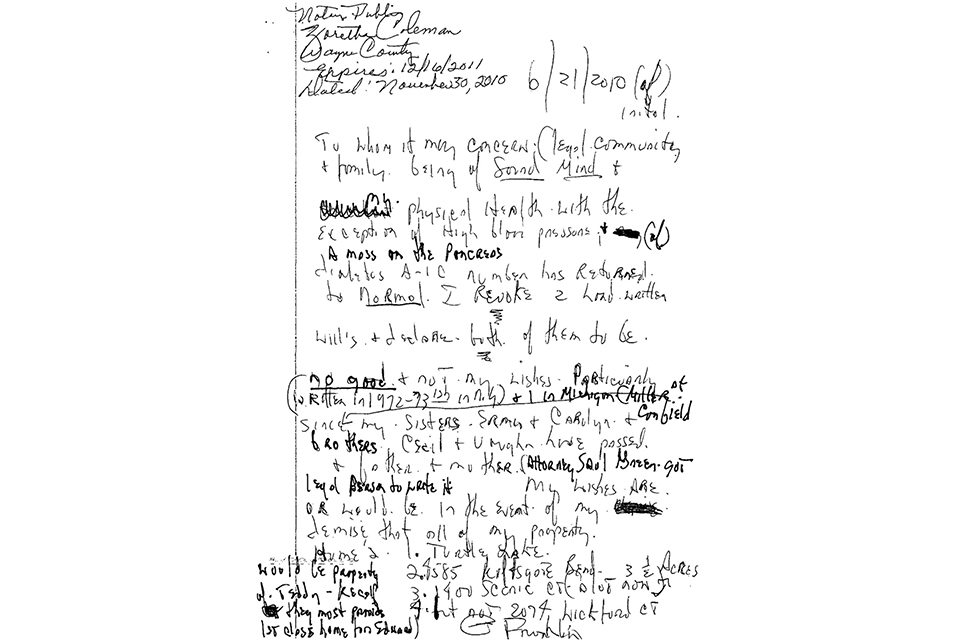 Notary Public
Zoretha Coleman
Wayne County
Expires: 12/16/2011
Dated: November 30, 2010
6/21/2010 (af)
initol.
To whom it may concern; (legal community
+ family. being of Sound Mind +
physical Health with the
exception of High blood pressure, +
A mass on the Pancreas
diabetes A-1C number has Returned
to Normal. I Revoke 2 hand written
will's + declare both of them to be.
no good + not my wishes. Particularly
(written in 1972-73 in N.Y) + 1 in Michigan
Since my Sisters Erma + Carolyn +
brothers Cecil + Vaughn have passed.
+ father + mother. (Attorney Saul Green got
legal person to write it My wishes ARE
OR would be in the event of my
demise that all of my property.
Home's 1. Turtle Lake.
would be property 2. 4585 Kiltsgore Bend - 3 1/2 Acres
of Teddy - Kecalf 3. 1400 Scenic CT. a lot now
they must provide 4. lot next 2074 Wickford CT
1st close home for Edward)
Franklin